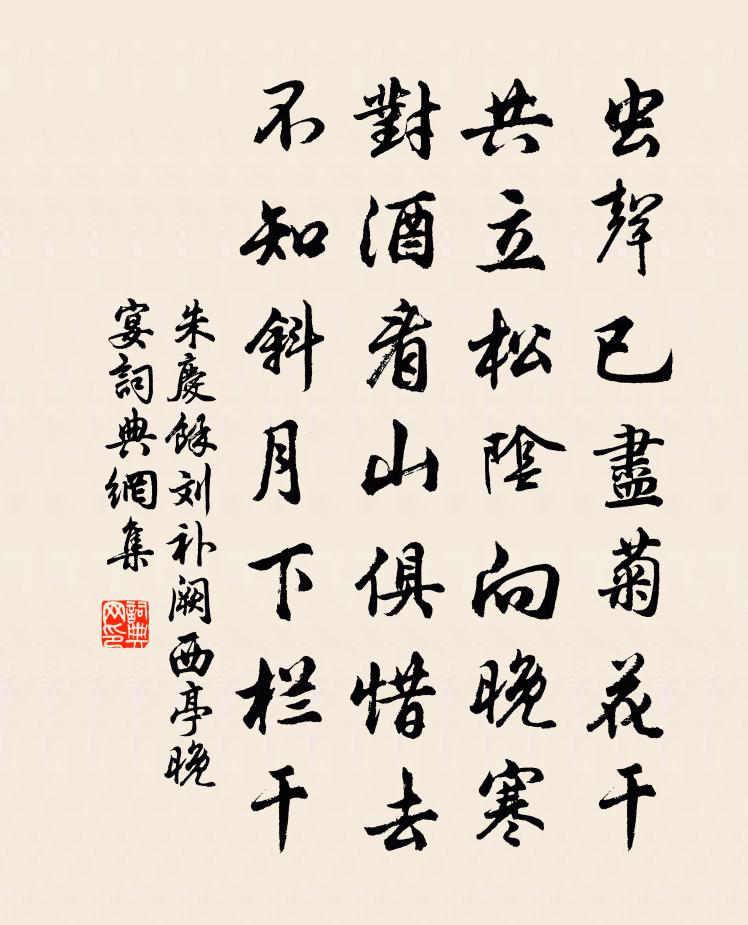 虫聲已盡菊花干
共立松陰向晚寒
對酒看山俱惜去
不知斜月下栏干
朱慶餘刘补阙西亭晚
宴詞典網集
詞典网印